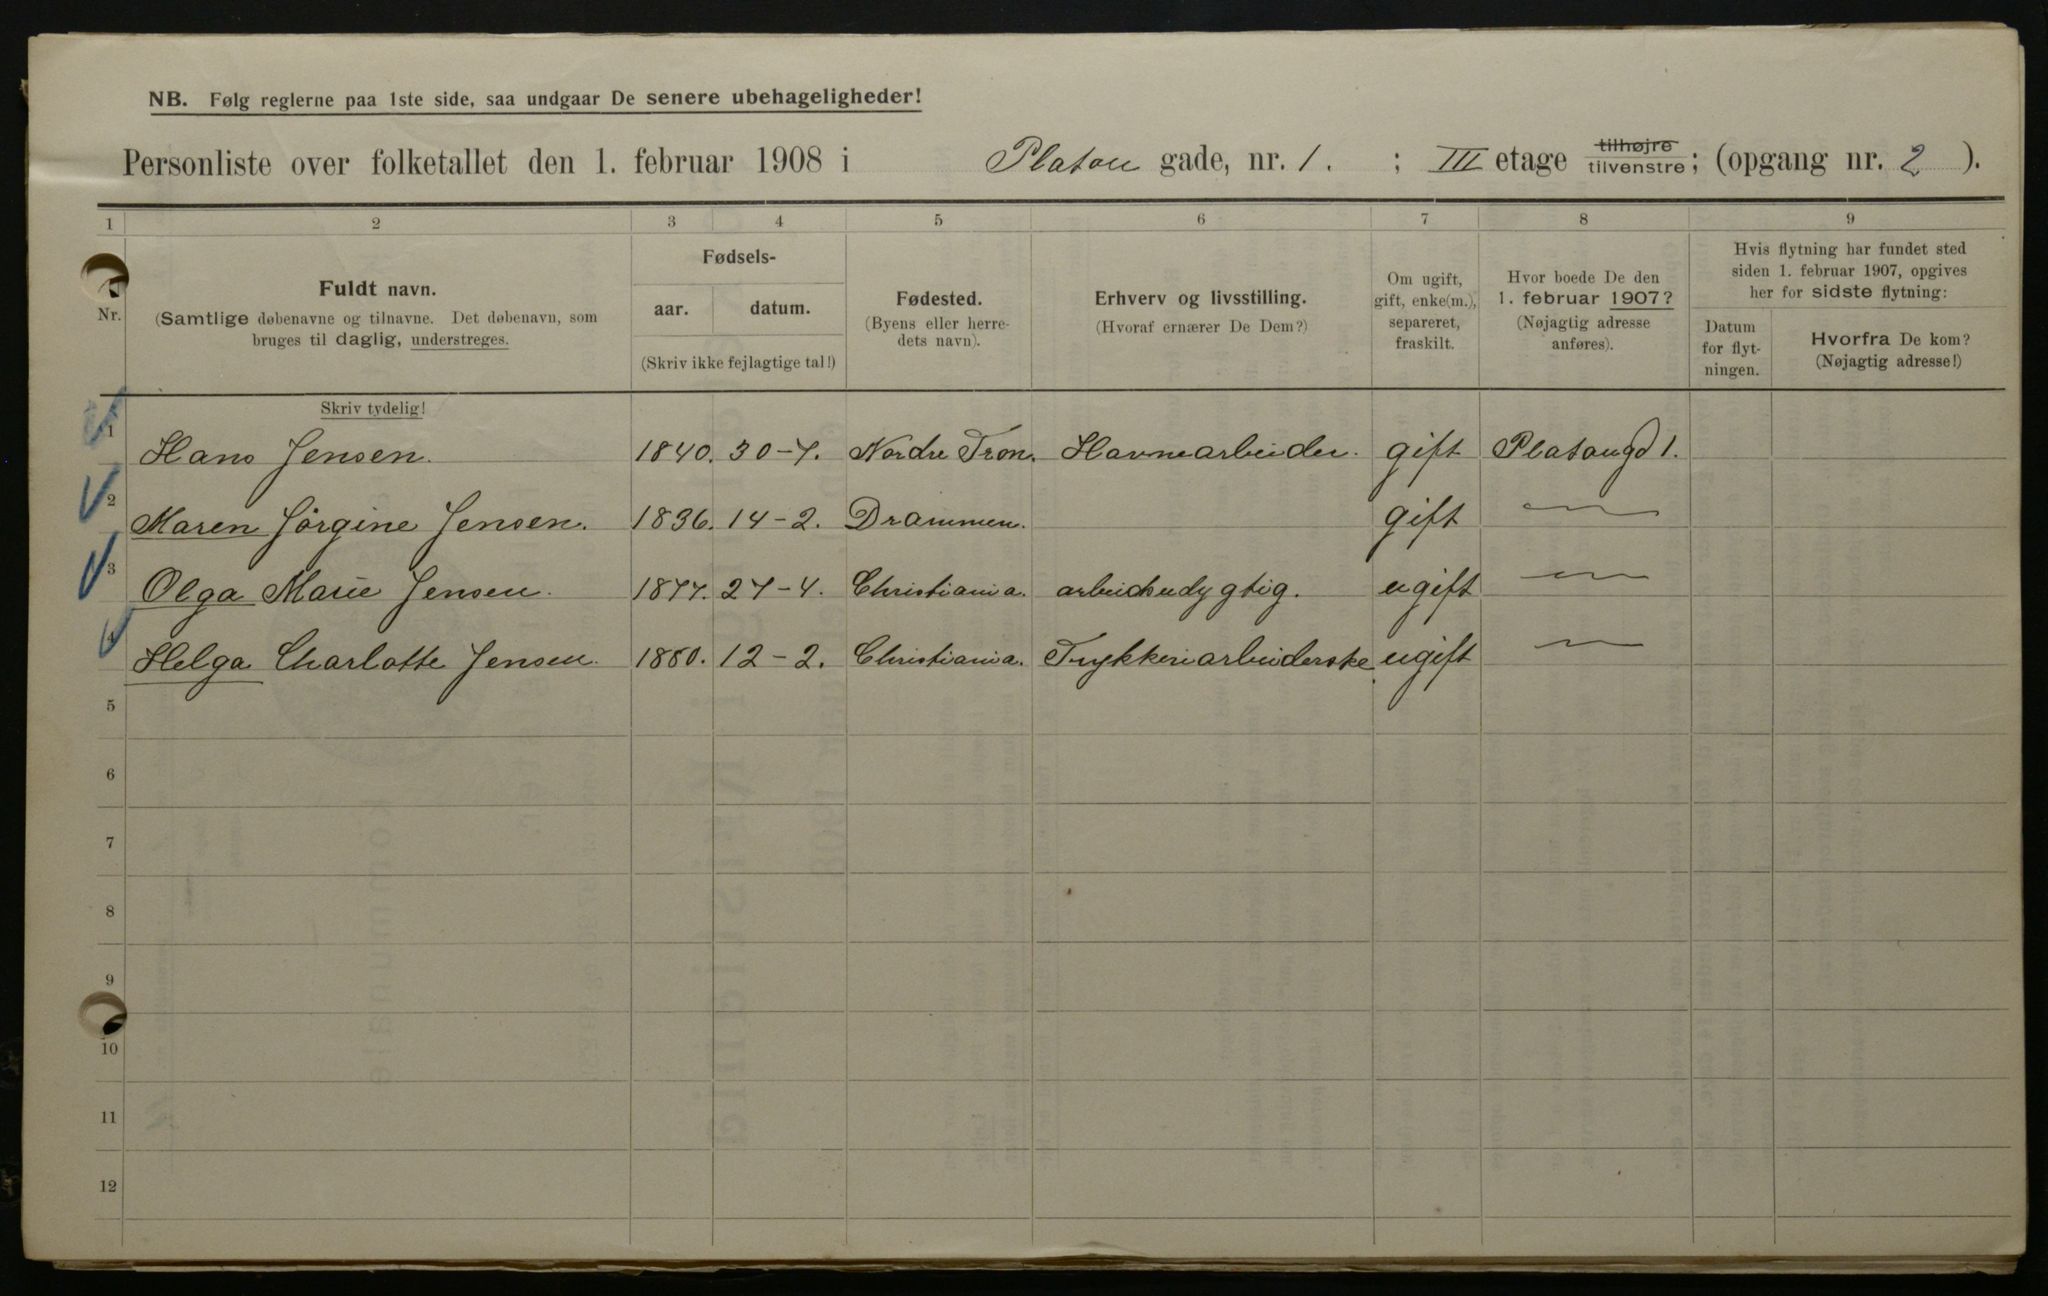 NB. Følg reglerne paa 1ste side, saa undgaar De senere ubehageligheder!
Personliste over folketallet den 1. februar 1908 i Platou gade, nr. 1. ; III etage tilhøjre tilvenstre; (opgang nr. 2 ).
1 2 3 4 5 6 7 8 9
Nr.
Fuldt navn.
(Samtlige døbenavne og tilnavne. Det døbenavn, som
bruges til daglig, understreges.
Fødsels-
aar. datum.
(Skriv ikke fejlagtige tal!)
Fødested.
(Byens eller herre-
dets navn).
Erhverv og livsstilling.
(Hvoraf ernærer De Dem?)
Om ugift,
gift, enke(m.),
separeret,
fraskilt.
Hvor boede De den
1. februar 1907?
(Nøjagtig adresse
anføres).
Hvis flytning har fundet sted
siden 1. februar 1907, opgives
her for sidste flytning:
Datum
for flyt-
ningen.
Hvorfra De kom?
(Nøjagtig adresse!)
Skriv tydelig!
1 Hans Jensen. 1840. 30-7. Nordre Tron. Havnearbeider. gift Platougd 1.
2 Maren Jörgine Jensen. 1836. 14-2. Drammen. gift —
3 Olga Marie Jensen. 1877. 27-4. Christiania. arbeidsudygtig. ugift —
4 Helga Charlotte Jensen. 1880. 12-2. Christiania. Trykkeriarbeiderske. ugift —
5
6
7
8
9
10
11
12